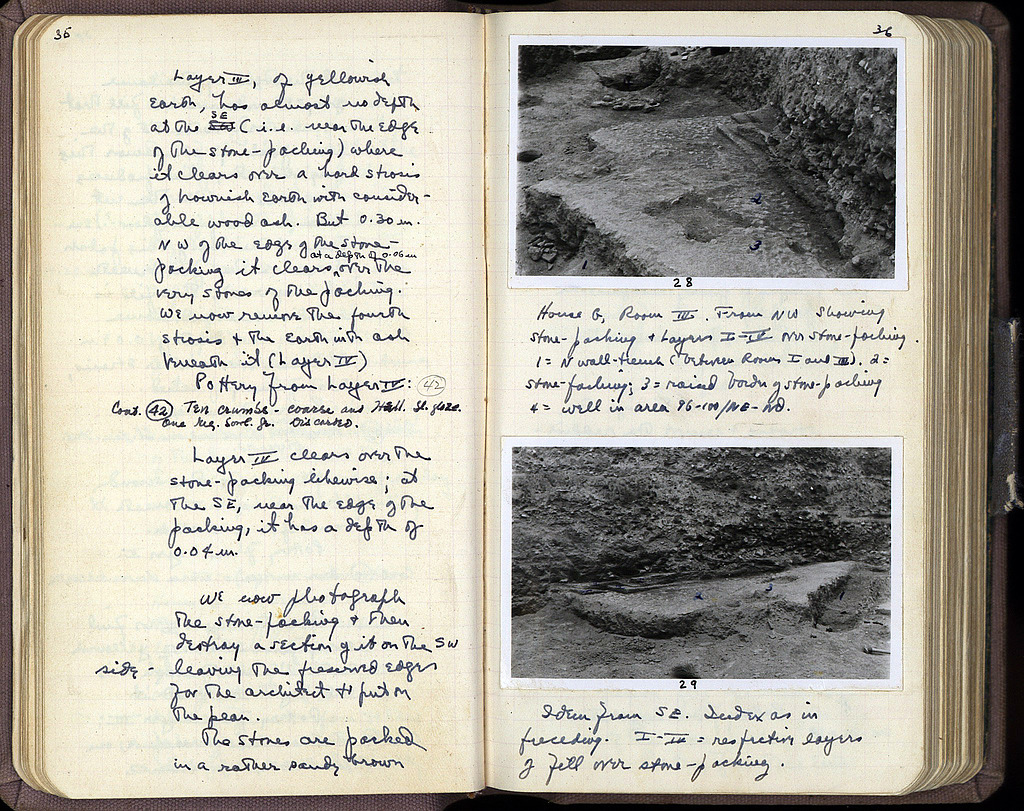 35
Layer III, of yellowish
earth, has almost no depth
at the SW SE (i.e. near the edge
of the stone-packing) where
it clears over a hard strosis
of brownish earth with consider-
able wood ash. But 0.30 m.
NW of the edge of the stone-
packing it clears, at a depth of 0.06 m over the
very stones of the packing.
We now remove the fourth
strosis & the earth with ash
beneath it (Layer IV)
Pottery from Layer IV: 42
Cont. 42 Ten crumbs - coarse and Hell. bl. glaze.
One Meg. bowl fr. Discarded.
Layer IV clears over the
stone-packing likewise; at
the SE, near the edge of the
packing, it has a depth of
0.04 m.
We now photograph
the stone-packing & then
destroy a section of it on the SW
side - leaving the preserved edges
for the architect to put on
the plan.
The stones are packed
in a rather sandy brown
36
2
3
28
House G, Room III. From NW showing
stone-packing & Layers I-IV over stone-packing.
1 = N wall-trench (between Rooms I and III). 2 =
stone-packing; 3 = raised border of stone-packing
4 = well in area 96-100/ΝΕ-ΝΘ.
29
Idem from SE. Index as in
preceding. I-IV = respective layers
of fill over stone-packing.